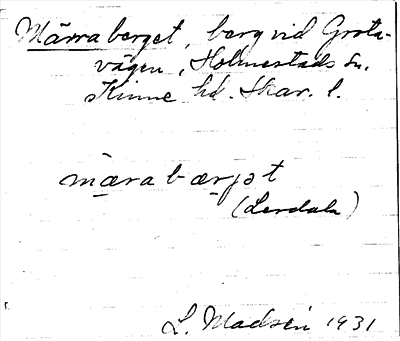 Märraberget, berg vid Grota-
vägen, Holmestads sn.
Kinne hd. Skar. l.
mærabærjət
(Lerdala)
L. Madsén 1931